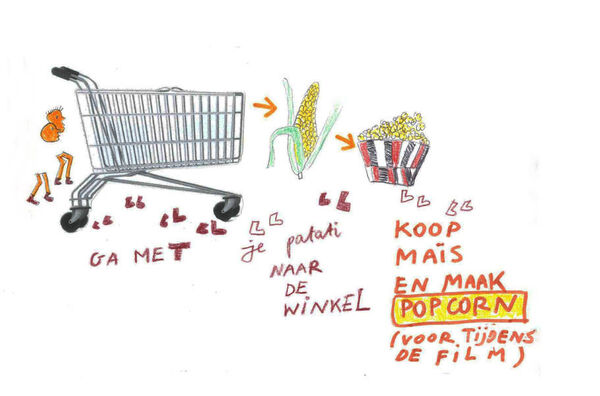 GA MET
je patati
NAAR
DE
WINKEL
KOOP
MAÏS
EN MAAK
POPCORN
(VOOR TIJDENS
DE FILM)